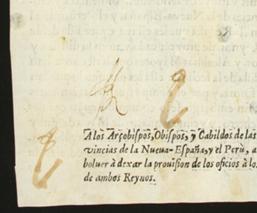 A los Arçobispos, Obispos, y Cabildos de las
vincias de la Nueua-España, y el Perù, a
boluer à dexar la prouision de los oficios à los
de ambos Reynos.